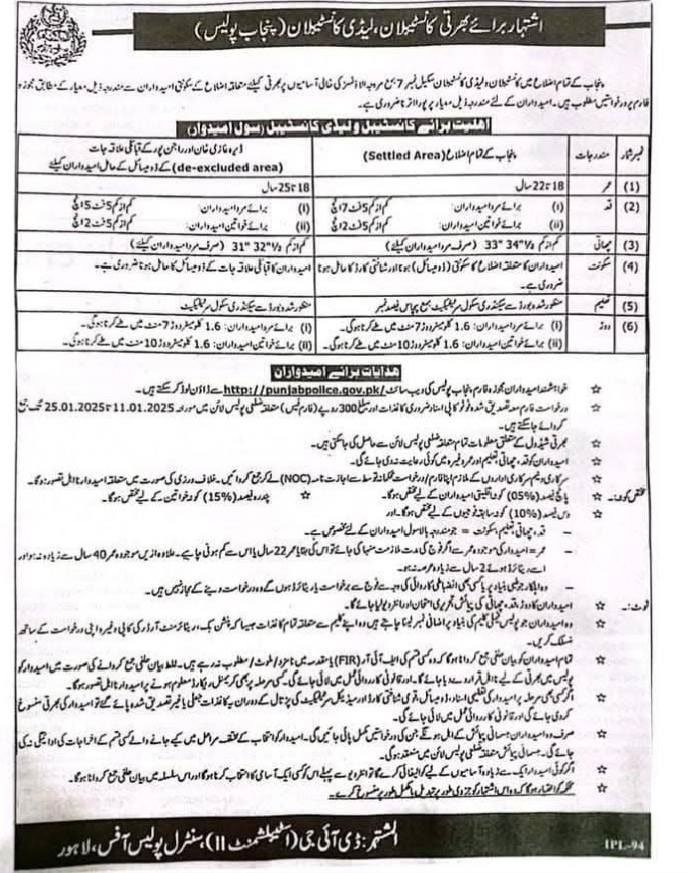 اشتہار برائے بھرتی کانسٹیبلان، لیڈی کانسٹیبلان (پنجاب پولیس)
پنجاب کے تمام اضلاع میں کانسٹیبلان و لیڈی کانسٹیبلان سکیل نمبر 7 بمع مروجہ الاؤنسز کی خالی آسامیوں پر بھرتی کیلئے متعلقہ اضلاع کے سکونتی امیدواران سے مندرجہ ذیل معیار کے مطابق مجوزہ
فارم پر درخواستیں مطلوب ہیں۔ امیدواران کے لئے مندرجہ ذیل معیار پر پورا اترنا ضروری ہے۔
اھلیت برائے کانسٹیبل و لیڈی کانسٹیبل (سول امیدوار)
نمبر شمار مندرجات پنجاب کے تمام اضلاع (Settled Area) ڈیرہ غازی خان اور راجن پور کے قبائلی علاقہ جات
(de-excluded area) کے ڈومیسائل کے حامل امیدواران کیلئے
(1) عمر 18 تا 22 سال 18 تا 25 سال
(2) قد (i) برائے مرد امیدواران: کم از کم 5 فٹ 7 انچ (i) برائے مرد امیدواران: کم از کم 5 فٹ 5 انچ
(ii) برائے خواتین امیدواران: کم از کم 5 فٹ 2 انچ (ii) برائے خواتین امیدواران: کم از کم 5 فٹ 2 انچ
(3) چھاتی کم از کم 33" 34½" (صرف مرد امیدواران کیلئے) کم از کم 31" 32½" (صرف مرد امیدواران کیلئے)
(4) سکونت امیدواران کا متعلقہ اضلاع کا سکونتی (ڈومیسائل) ہونا اور شناختی کارڈ کا حامل ہونا امیدواران کا قبائلی علاقہ جات کے ڈومیسائل کا حامل ہونا ضروری ہے۔
ضروری ہے۔
(5) تعلیم منظور شدہ بورڈ سے سیکنڈری سکول سرٹیفکیٹ بمع پچاس فیصد نمبر منظور شدہ بورڈ سے سیکنڈری سکول سرٹیفکیٹ
(6) دوڑ (i) برائے مرد امیدواران: 1.6 کلومیٹر دوڑ 7 منٹ میں طے کرنا ہوگی۔ (i) برائے مرد امیدواران: 1.6 کلومیٹر دوڑ 7 منٹ میں طے کرنا ہوگی۔
(ii) برائے خواتین امیدواران: 1.6 کلومیٹر دوڑ 10 منٹ میں طے کرنا ہوگی۔ (ii) برائے خواتین امیدواران: 1.6 کلومیٹر دوڑ 10 منٹ میں طے کرنا ہوگی۔
ھدایات برائے امیدواران
☆ خواہشمند امیدواران مجوزہ فارم پنجاب پولیس کی ویب سائٹ http://punjabpolice.gov.pk/ سے ڈاؤن لوڈ کر سکتے ہیں۔
☆ درخواست فارم معہ تصدیق شدہ فوٹو کاپی اسناد ضروری کاغذات اور مبلغ 300 روپے (فارم فیس) متعلقہ ضلعی پولیس لائن میں مورخہ 11.01.2025 تا 25.01.2025 تک جمع
کروائے جا سکتے ہیں۔
☆ بھرتی شیڈول کے متعلق معلومات تمام متعلقہ ضلعی پولیس لائن سے حاصل کی جا سکتی ہیں۔
☆ امیدواران کو قد، چھاتی، تعلیم اور عمر وغیرہ میں کوئی رعایت نہ دی جائے گی۔
☆ سرکاری و نیم سرکاری اداروں کے ملازم اپنا فارم/درخواست محکمانہ توسط سے اجازت نامہ (NOC) لے کر جمع کروائیں۔ خلاف ورزی کی صورت میں متعلقہ امیدوار نا اہل تصور ہوگا۔
مختص کوٹہ:۔ ☆ پانچ فیصد (05%) کوٹہ اقلیتی امیدواران کے لیے مختص ہوگا۔ ☆ پندرہ فیصد (15%) کوٹہ خواتین کے لیے مختص ہوگا۔
☆ دس فیصد (10%) کوٹہ سابقہ فوجیوں کے لیے مختص ہوگا۔ اور
– قد، چھاتی، تعلیم، سکونت = جو مندرجہ بالا سول امیدواران کے لیے مخصوص ہے۔
– عمر = امیدوار کی موجودہ عمر سے اگر فوج کی مدت ملازمت منہا کی جائے تو اس کی بقایا عمر 22 سال یا اس سے کم ہونی چاہیے۔ علاوہ ازیں موجودہ عمر 40 سال سے زیادہ نہ ہو اور
اسے ریٹائرڈ ہوئے 2 سال سے زیادہ عرصہ نہ ہو۔
– وہ اہلکار جو طبی بنیاد پر یا کسی بھی انضباطی کارروائی کی وجہ سے فوج سے برخواست یا ریٹائرڈ ہوں گے وہ درخواست دینے کے مجاز نہیں ہیں۔
نوٹ:۔ ☆ امیدواران کا دوڑ، قد، چھاتی کی پیمائش، تحریری امتحان اور انٹرویو لیا جائے گا۔
☆ وہ امیدواران جو پولیس فیملی کلیم کی بنیاد پر اضافی نمبر لینا چاہتے ہیں وہ اپنے کلیم سے متعلقہ تمام کاغذات جیسا کہ پنشن بک، ریٹائرمنٹ آرڈر کی کاپی وغیرہ اپنی درخواست کے ساتھ
منسلک کریں۔
☆ تمام امیدواران کو بیان حلفی جمع کروانا ہوگا کہ وہ کسی قسم کی ایف آئی آر (FIR) یا مقدمہ میں نامزد/ملوث/مطلوب نہ رہے ہیں۔ غلط بیان حلفی جمع کروانے کی صورت میں امیدوار کو
پولیس میں بھرتی کے لیے نا اہل قرار دے دیا جائے گا۔ اور قانونی کارروائی عمل میں لائی جائے گی۔ کسی مرحلہ پر بھی کریمنل ریکارڈ معلوم ہونے پر امیدوار نا اہل تصور ہوگا۔
☆ اگر کسی بھی مرحلہ پر امیدوار کی تعلیمی اسناد، ڈومیسائل، قومی شناختی کارڈ اور میڈیکل سرٹیفکیٹ کی پڑتال کے دوران یہ کاغذات جعلی یا غیر تصدیق شدہ پائے گئے تو امیدوار کی بھرتی منسوخ
کر دی جائے گی اور قانونی کارروائی عمل میں لائی جائے گی۔
☆ صرف وہ امیدواران جسمانی پیمائش کے اہل ہونگے جن کی درخواستیں مکمل پائی جائیں گی۔ امیدوار کو انتخاب کے مختلف مراحل میں کیے جانے والے کسی قسم کے اخراجات کی ادائیگی نہ کی
جائے گی۔ جسمانی پیمائش متعلقہ ضلعی پولیس لائن میں منعقد ہوگی۔
☆ اگر کوئی امیدوار ایک سے زیادہ آسامیوں کے لیے کوالیفائی کرے گا تو انٹرویو سے پہلے اس کو کسی ایک آسامی کا انتخاب کرنا ہوگا اور اس سلسلہ میں بیان حلفی جمع کروانا ہوگا۔
☆ محکمہ کو اختیار ہوگا کہ وہ اس اشتہار کو جزوی طور پر تبدیل یا مکمل طور پر منسوخ کرے۔
المشتہر: ڈی آئی جی (اسٹیبلشمنٹ II)، سنٹرل پولیس آفس، لاہور
IPL-94